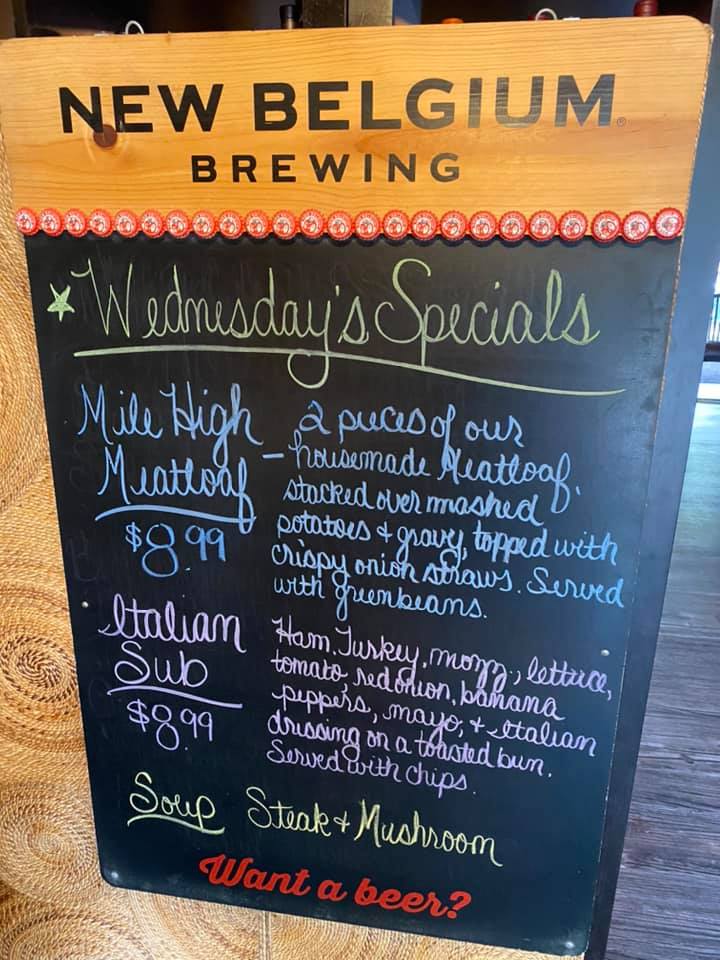 NEW BELGIUM®
BREWING
Wednesday's Specials
Mile High
Meatloaf -
$8.99
2 pieces of our
housemade Meatloaf,
stacked over mashed
potatoes + gravy, topped with
crispy onion straws. Served
with greenbeans.
Italian
Sub
$8.99
Ham, Turkey, mozz., lettuce,
tomato, red onion, banana
peppers, mayo, + Italian
dressing on a toasted bun.
Served with chips.
Soup Steak + Mushroom
Want a beer?